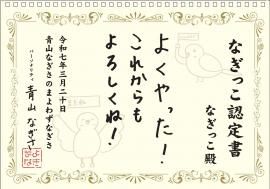 なぎっこ認定書
なぎっこ殿
よくやった！
これからも
よろしくね！
令和七年三月二十日
青山なぎさのまよわずなぎさ
パーソナリティ
青山 なぎさ